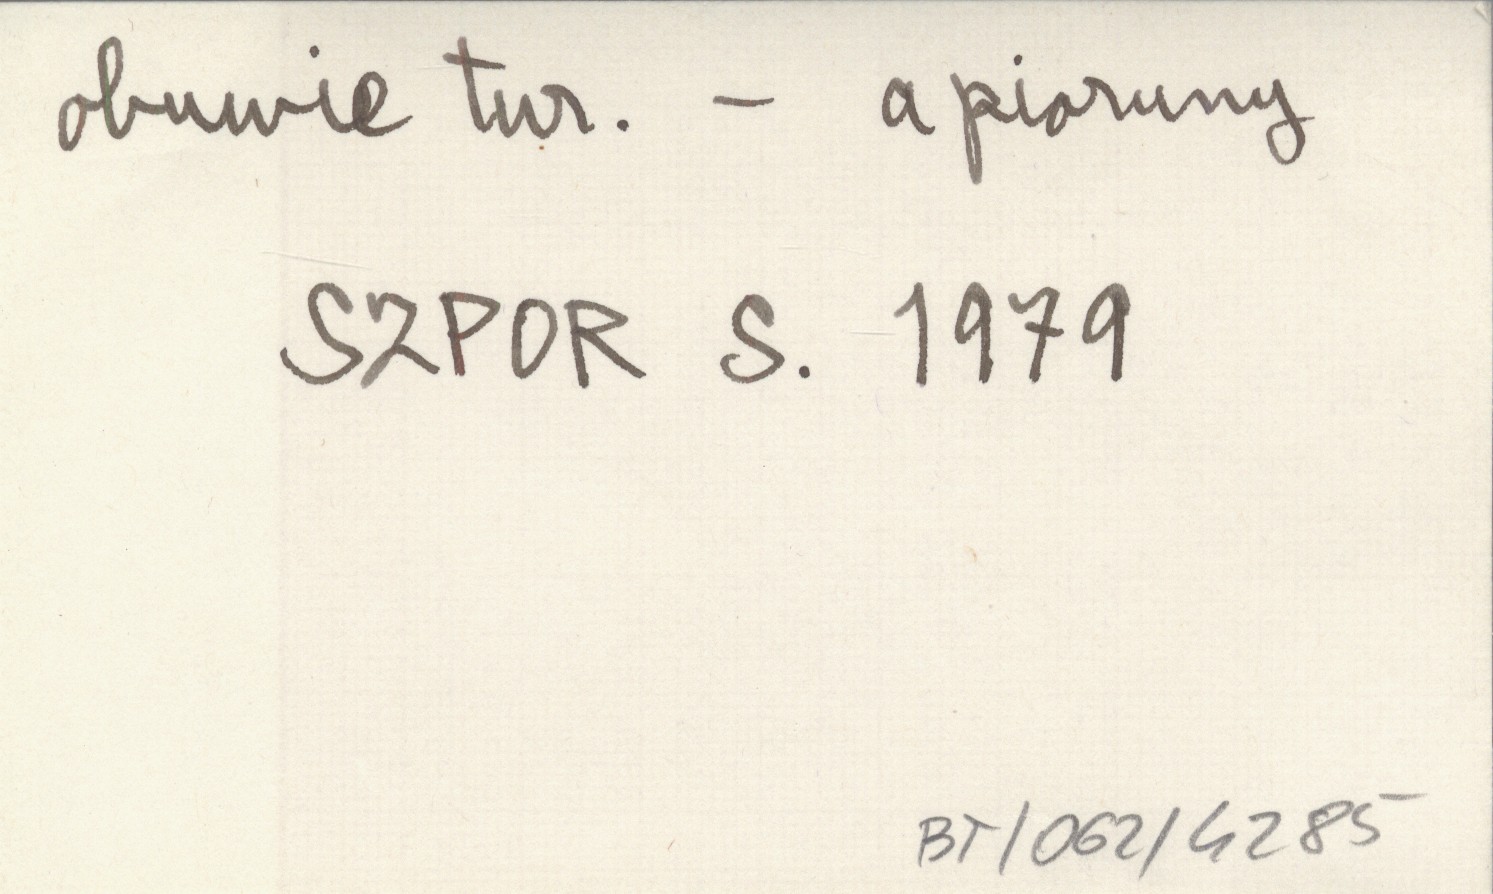 obuwie tur. - a pioruny
SZPOR S. 1979
BT/062/4285